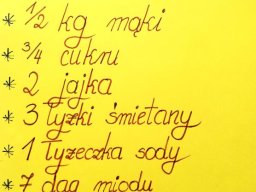 * 1/2 kg mąki
* 3/4 cukru
* 2 jajka
* 3 łyżki śmietany
* 1 łyżeczka sody
* 7 dag miodu